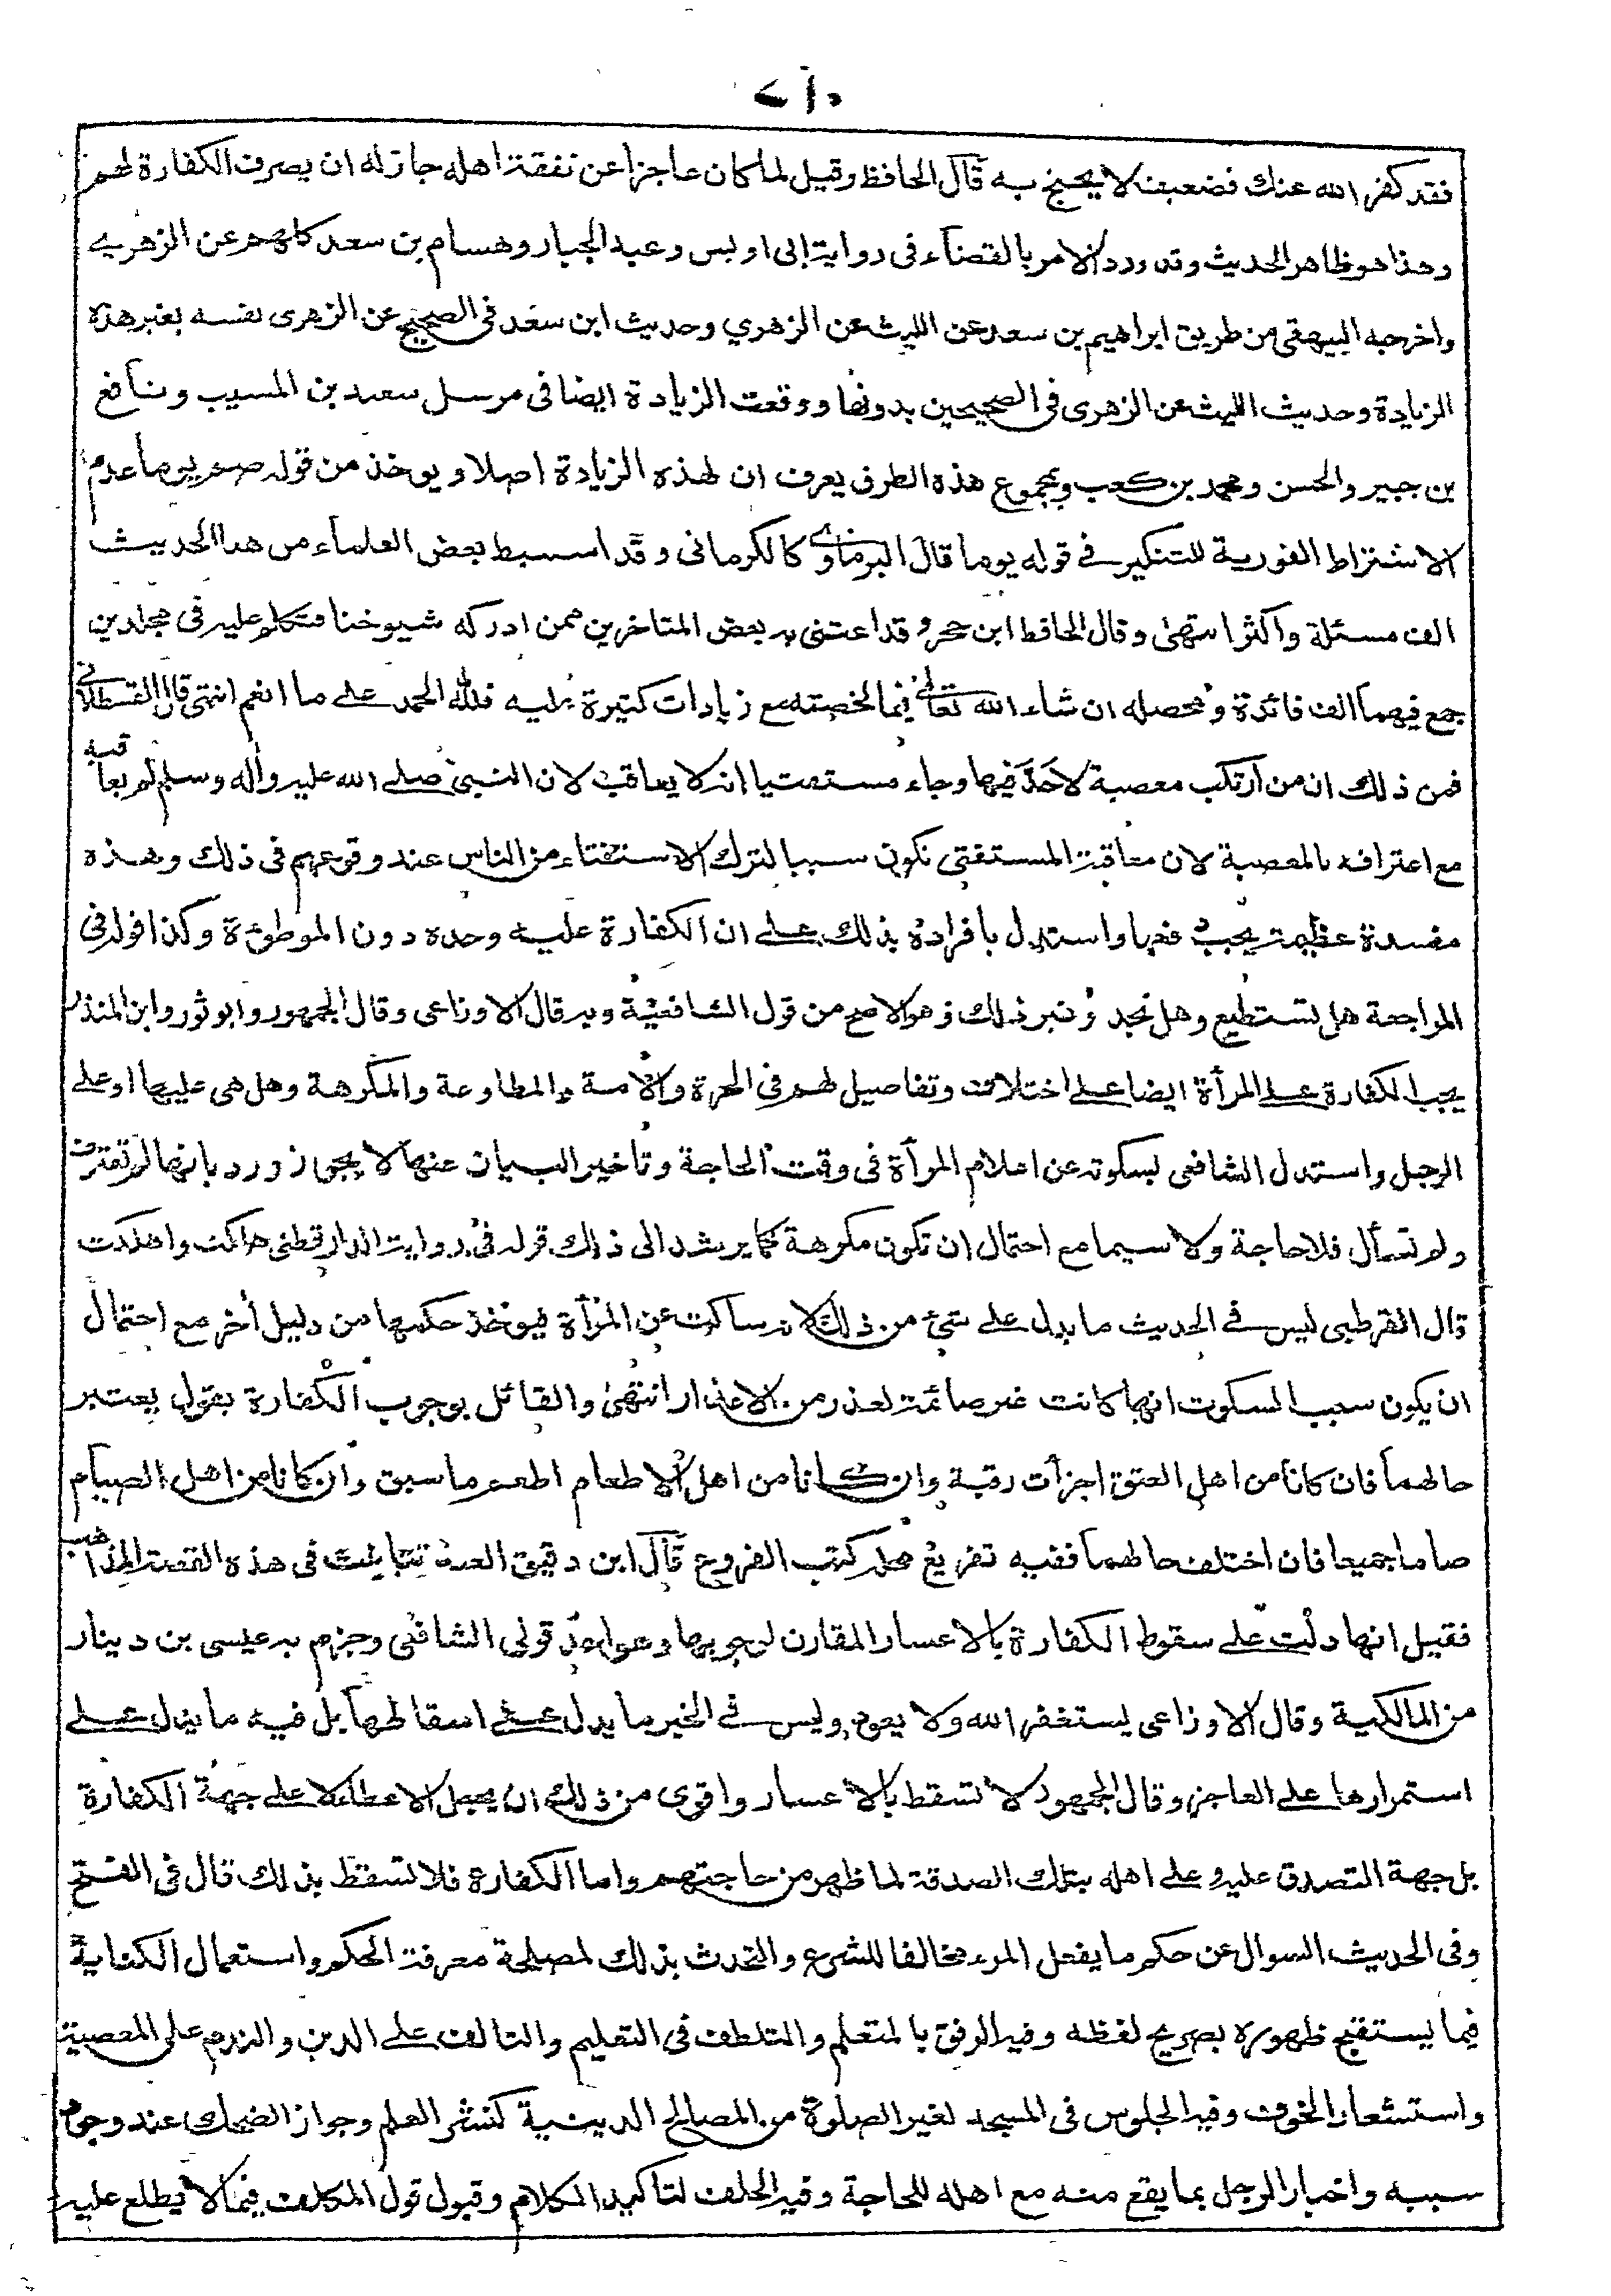 فقد كفر الله عنك فضعيف لا يحتج به قال الحافظ وقيل لما كان عاجزا عن نفقة اهله جاز له ان يصرف الكفارة لهم
وهذا هو ظاهر الحديث وقد ورد الامر بالقضاء فى رواية ابى اويس وعبد الجبار وهشام بن سعد كلهم عن الزهرى
واخرجه البيهقى من طريق ابراهيم بن سعد عن الليث عن الزهري وحديث ابن سعد فى الصحيح عن الزهرى نفسه بغير هذه
الزيادة وحديث الليث عن الزهرى فى الصحيحين بدونها ووقعت الزيادة ايضا فى مرسل سعيد بن المسيب ونافع
بن جبير والحسن ومحمد بن كعب وبمجموع هذه الطرق يعرف ان لهذه الزيادة اصلا ويوخذ من قوله صم يوما عدم
الاشتراط الفورية للتنكير فى قوله يوما قال البرماوى كالكرمانى وقد استنبط بعض العلماء من هذا الحديث
الف مسئلة واكثر انتهى وقال الحافظ ابن حجر وقد اعتنى به بعض المتاخرين ممن ادركه شيوخنا فتكلم عليه فى مجلدين
جمع فيهما الف فائدة ومحصله ان شاء الله تعالى فيما لخصته مع زيادات كثيرة عليه فلله الحمد على ما انعم انتهى قال القسطلانى
فمن ذلك ان من ارتكب معصية لا حد فيها وجاء مستفتيا انه لا يعاقب لان النبى صلى الله عليه واله وسلم لم يعاقبه
مع اعترافه بالمعصية لان معاقبة المستفتى تكون سببا لترك الاستفتاء من الناس عند وقوعهم فى ذلك وهذه
مفسدة عظيمة يجب دفعها واستدل بافراده بذلك على ان الكفارة عليه وحده دون الموطوءة وكذا قوله فى
المراجعة هل تستطيع وهل تجد وغير ذلك وهو الاصح من قول الشافعية وبه قال الاوزاعى وقال الجمهور وابو ثور وابن المنذر
يجب الكفارة على المرأة ايضا على اختلاف وتفاصيل لهم فى الحرة والامة والمطاوعة والمكرهة وهل هى عليها او على
الرجل واستدل الشافعى بسكوته عن اعلام المرأة فى وقت الحاجة وتاخير البيان عنها لا يجوز ورد بانها لم تعترف
ولم تسأل فلا حاجة ولا سيما مع احتمال ان تكون مكرهة كما يرشد الى ذلك قوله فى رواية الدارقطنى هلكت واهلكت
قال القرطبى ليس فى الحديث ما يدل على شئ من ذلك لانه ساكت عن المرأة فيوخذ حكمها من دليل أخر مع احتمال
ان يكون سبب السكوت انها كانت غير صائمة لعذر من الاعذار انتهى والقائل بوجوب الكفارة بقول يعتبر
حالهما فان كانا من اهل العتق اجزأت رقبة وان كانا من اهل الاطعام اطعم ما سبق وان كانا من اهل الصيام
صاما جميعا فان اختلف حالهما ففيه تفريع محله كتب الفروع قال ابن دقيق العيد تباينت فى هذه القصة المذاهب
فقيل انها دلت على سقوط الكفارة بالاعسار المقارن لوجوبها وهو احد قولى الشافعى وجزم به عيسى بن دينار
من المالكية وقال الاوزاعى يستغفر الله ولا يعود وليس فى الخبر ما يدل على اسقاطها بل فيه ما يدل على
استمرارها على العاجز وقال الجمهور لا تسقط بالاعسار واقوى من ذلك ان يجعل الاعطاء لا على جهة الكفارة
بل جهة التصدق عليه وعلى اهله بتلك الصدقة لما ظهر من حاجتهم واما الكفارة فلا تسقط بذلك قال فى الفتح
وفى الحديث السوال عن حكم ما يفعل المرء مخالفا للشرع والتحدث بذلك لمصلحة معرفة الحكم واستعمال الكناية
فيما يستقبح ظهوره بصريح لفظه وفيه الرفق بالمتعلم والتلطف فى التعليم والتالف على الدين والندم على المعصية
واستشعار الخوف وفيه الجلوس فى المسجد لغير الصلوة من المصالح الدينية كنشر العلم وجواز الضحك عند وجود
سببه واخبار الرجل بما يقع منه مع اهله للحاجة وفيه الحلف لتاكيد الكلام وقبول قول المكلف فيما لا يطلع عليه